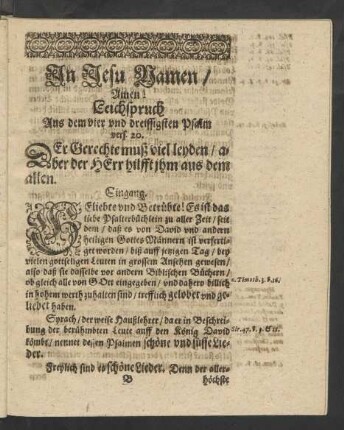 In Jesu Namen /
Amen!
Leichspruch
Aus dem vier vnd dreissigsten Psalm
verß 20.
DEr Gerechte muß viel leyden / a-
ber der HErr hilfft jhm aus dem
allen.
Eingang.
GEliebte vnd Betrübte! Es ist das
liebe Psalterbüchlein zu aller Zeit / seit
dem / daß es von David vnd andern
heiligen Gottes Männern ist verferti-
get worden / biß auff jetzigen Tag / bey
vielen gottseligen Leuten in grossem Ansehen gewesen /
also daß sie dasselbe vor andern Biblischen Büchern /
ob gleich alle von GOtt eingegeben / vnd dahero billich
in hohem werth zuhalten sind / trefflich gelobet vnd ge-
liebet haben.
2. Timoth. 3. v. 16.
Syrach / der weise Haußlehrer / da er in Beschrei-
bung der berühmbten Leute auff den König David
kömbt / nennet dessen Psalmen schöne vnd süsse Lie-
der.
Sir. 47. v. 9.
Freylich sind es schöne Lieder. Denn der aller-
B höchste